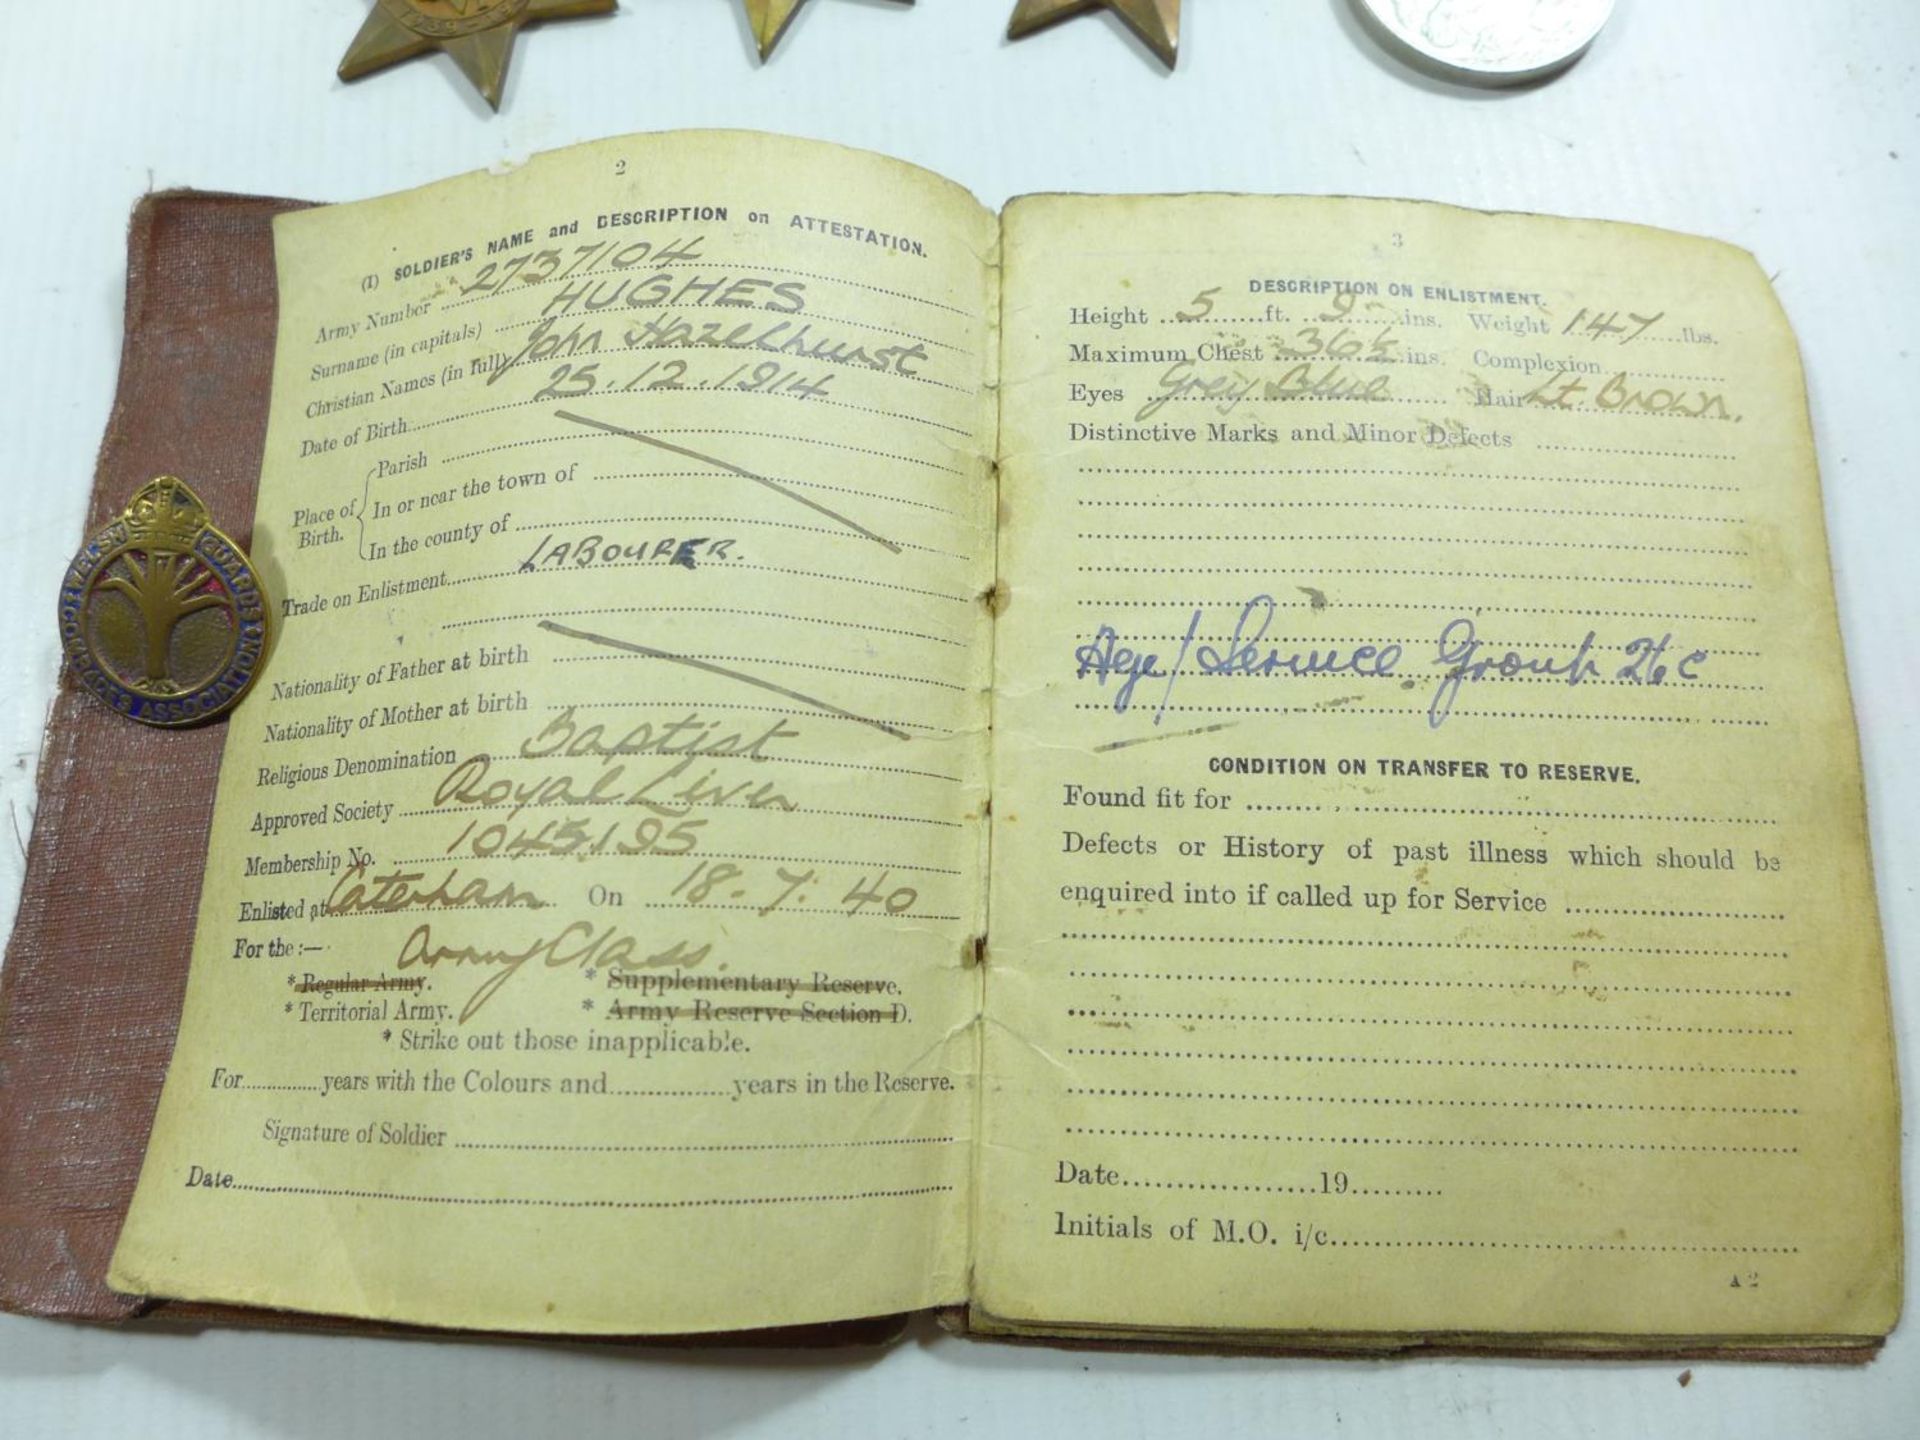 2
(I) SOLDIER'S NAME and DESCRIPTION on ATTESTATION.
Army Number 2737104
Surname (in capitals) HUGHES
Christian Names (in full) John Hazelhurst
Date of Birth 25.12.1914
Place of Birth.
Parish
In or near the town of
In the county of
Trade on Enlistment LABOURER.
Nationality of Father at birth
Nationality of Mother at birth
Religious Denomination Baptist
Approved Society Royal Liver
Membership No. 1045195
Enlisted at Caterham On 18-7-40
For the:— Army Class.
* Regular Army. * Supplementary Reserve.
* Territorial Army. * Army Reserve Section D.
* Strike out those inapplicable.
For years with the Colours and years in the Reserve.
Signature of Soldier
Date
3
DESCRIPTION ON ENLISTMENT.
Height 5 ft. 9 ins. Weight 147 lbs.
Maximum Chest 36½ ins. Complexion
Eyes Grey Blue Hair Lt. Brown.
Distinctive Marks and Minor Defects
Age/Service Group 26c
CONDITION ON TRANSFER TO RESERVE.
Found fit for
Defects or History of past illness which should be
enquired into if called up for Service
Date 19
Initials of M.O. i/c
A 2
WELSH GUARDS COMRADES ASSOCIATION